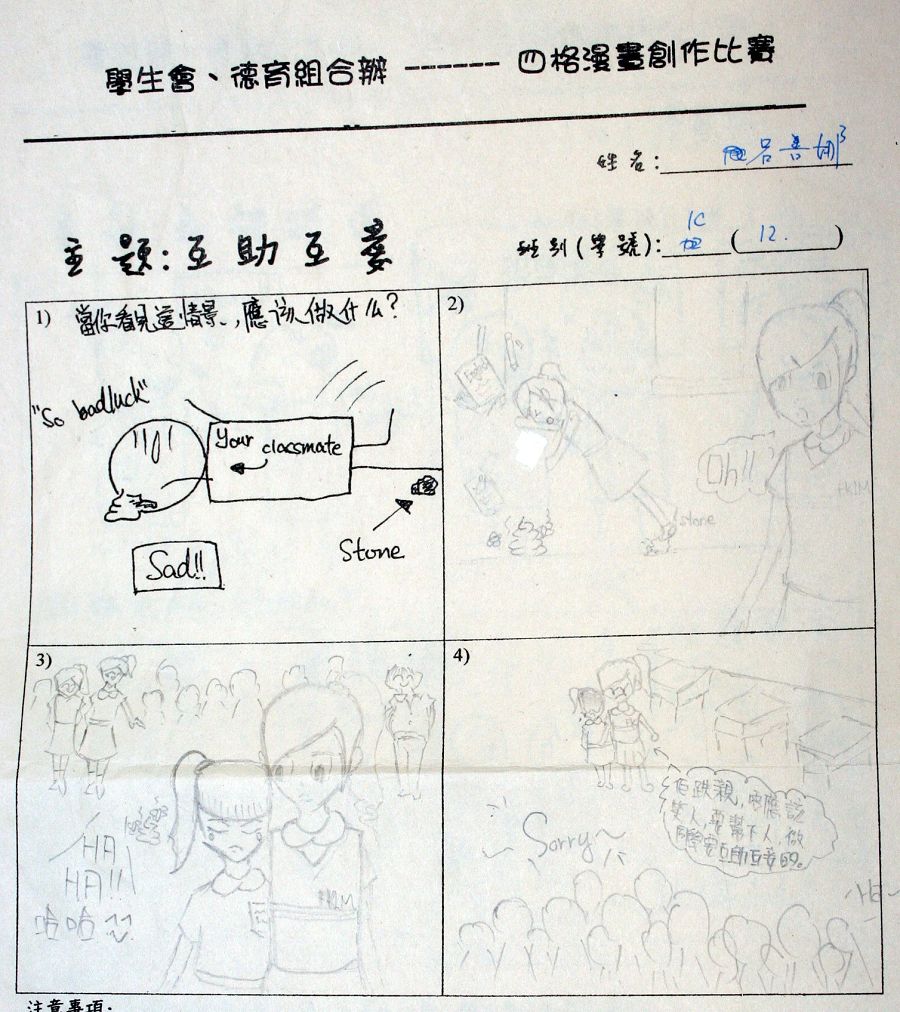 學生會、德育組合辦 ------ 四格漫畫創作比賽
姓名: 呂善娜
主題:互助互愛
班別(學號): 1C ( 12. )
1) 當你看見這情景,應該做什么?
"So badluck"
Your classmate
Stone
Sad!!
2)
English
Oh!!
stone
FKLM
3)
HA
HA!!
哈哈
FKLM
4)
佢跌親,唔應該
笑人,要幫下人,做
同學要互助互愛的。
~Sorry~
注意事項: